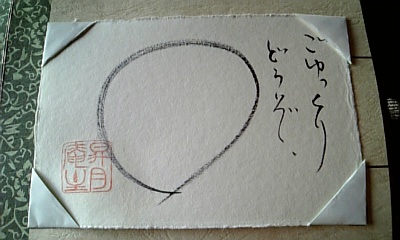 ごゆっくり
どうぞ、
昇月
庵主